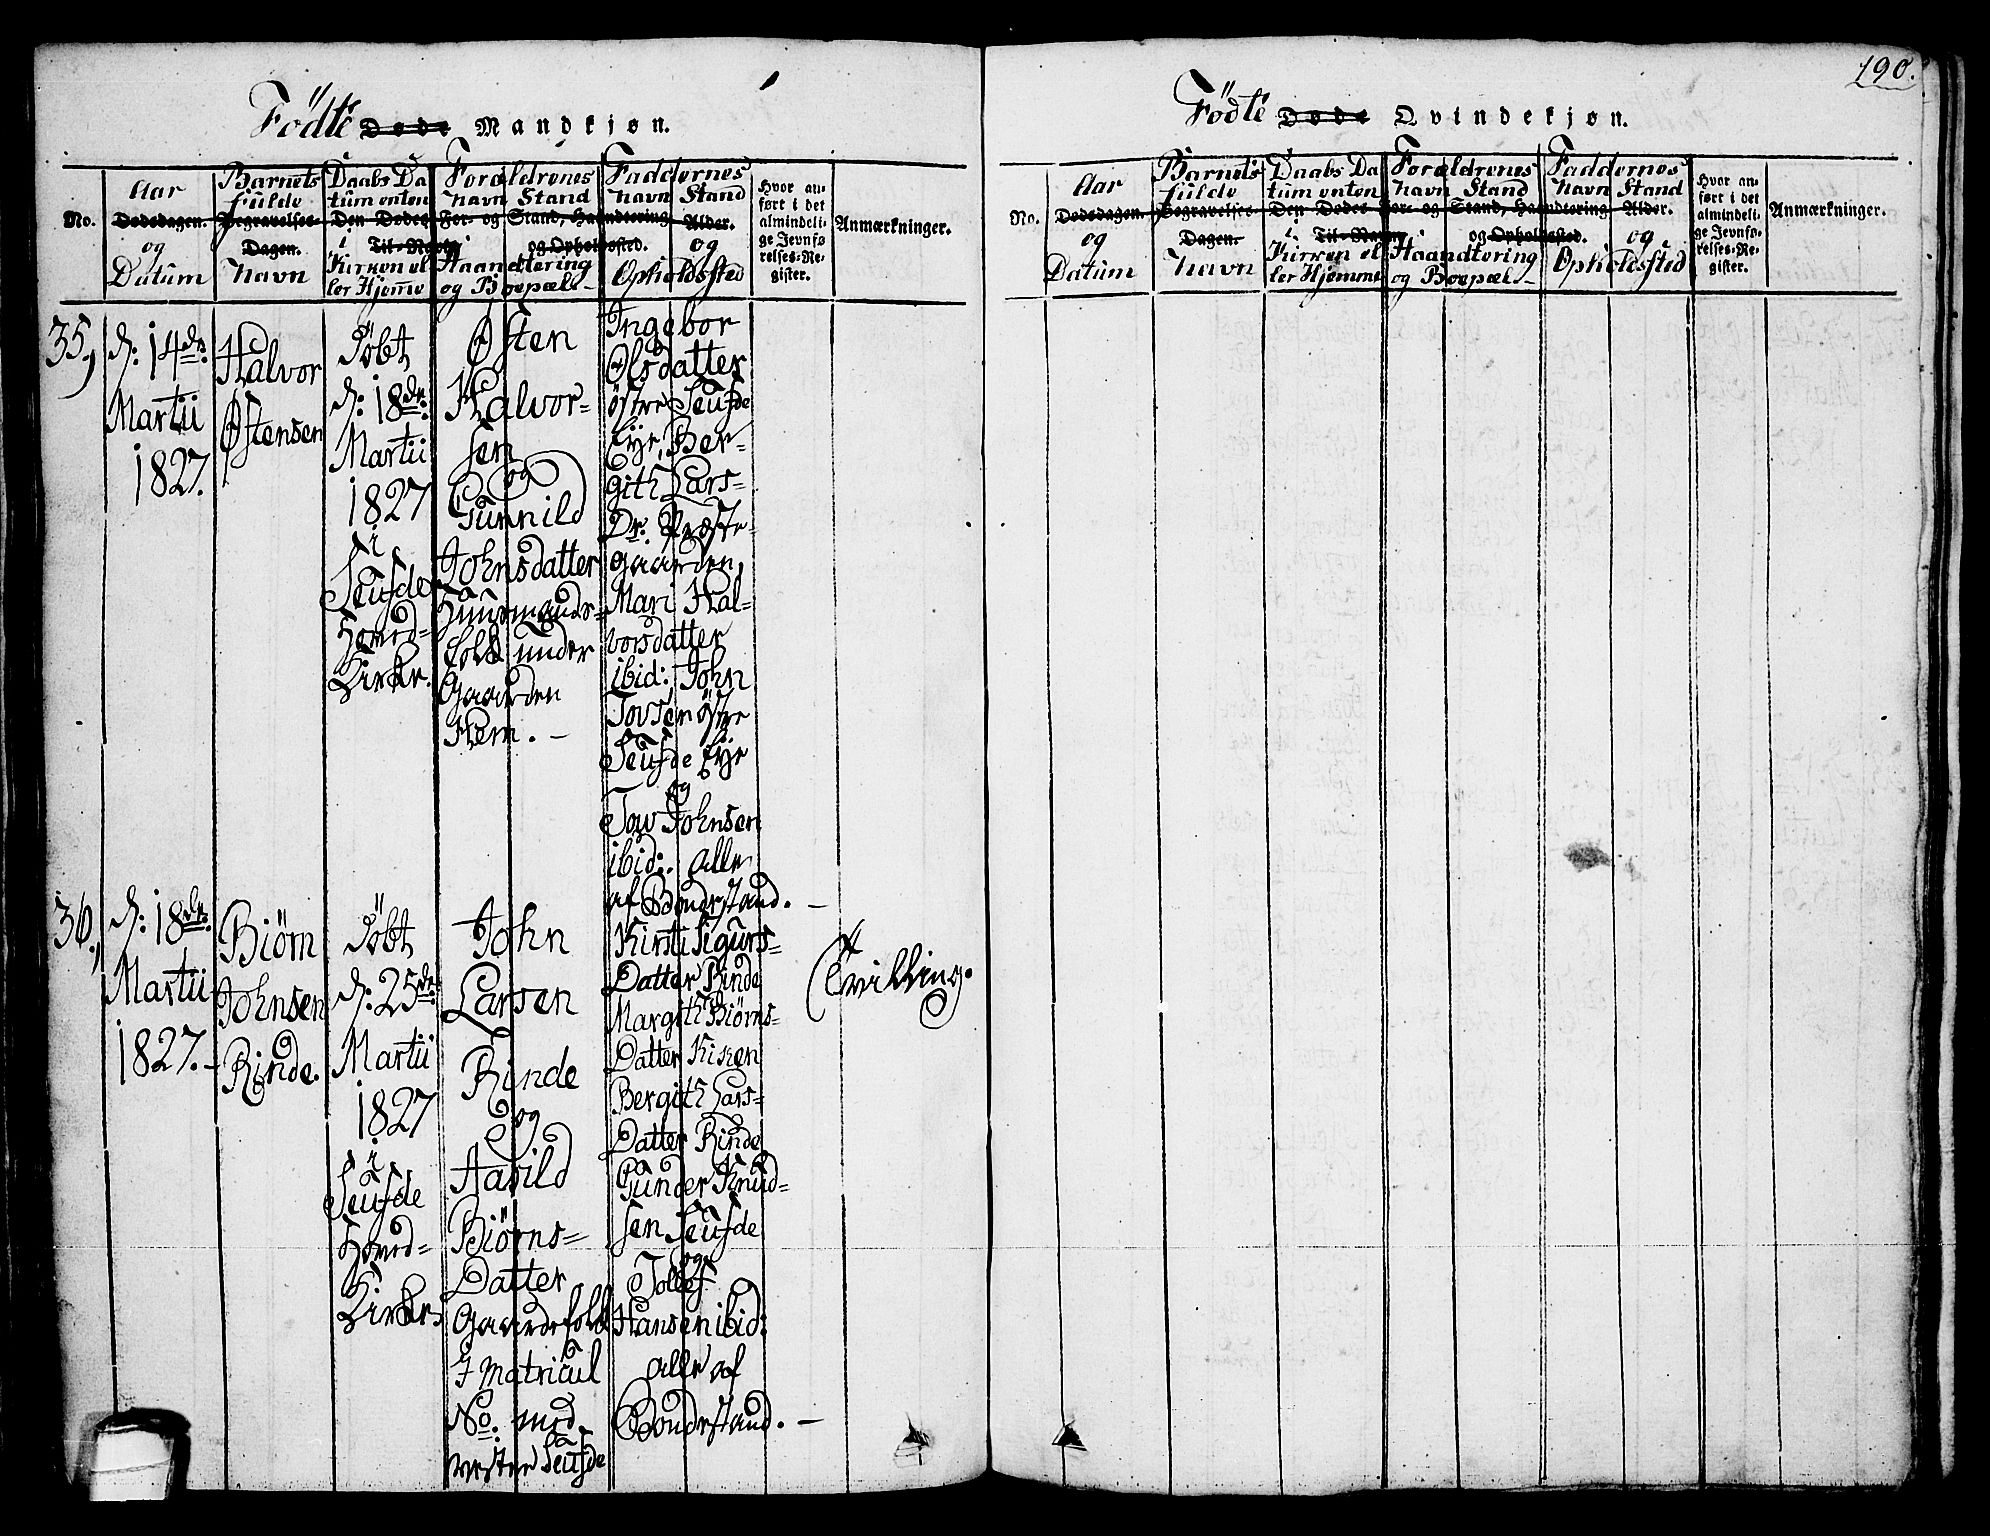 190.
Födte Døde Mandkjøn.
No.
Aar
Dødsdagen.
og
Datum
Barnets
fulde
Begravelses-
Dagen.
Navn
Daabs Da
tum enten
Den Dødes For- og
i Til-Navn
Kirken el
ler Hjemme
Forældrenes
Navn Stand
Stand, Haandtering
og Opholdssted.
Haandtering
og Boepæl
Faddernes
Navn Stand
Alder.
og
Opholdssted
Hvor an-
ført i det
almindeli-
ge Jevnfø-
relses-Re-
gister.
Anmærkninger.
35,
d: 14de
Martii
1827.
Halvor
Østensen
Døbt
d: 18de
Martii
1827
i
Seufde
Hoved=
Kirke.
Østen
Halvor-
sen
og
Gunnild
Johnsdatter
Huusmands-
folk under
Gaarden
Hem. –
Ingebor
Olsdatter
östre Seufde
Eye, Ber-
gith Lars-
Dr. Præste-
gaarden,
Mari Hal-
vorsdatter
ibid: John
Tovsen östre
Seufde Eye
og
Tov Johnsen
ibid: alle
af Bondestand. –
36,
d: 18de
Martii
1827. –
Biörn
Johnsen
Rinde.
Døbt
d: 25de
Martii
1827
i
Seufde
Hoved=
Kirke
John
Larsen
Rinde
og
Aasild
Biörns=
Datter
Gaardefolk
I Matricul
No. med
vestre Seufde
Kirsti Sigurs=
Datter Rinde
Margith Biörns=
Datter Kisen
Bergith Lars=
Datter Rinde
Gunder Knud=
sen Seufde
og
Tollef
Hansen ibid:
alle af
Bondestand. –
Tvilling.
Födte Døde Qvindekjøn.
No.
Aar
Dødsdagen.
og
Datum
Barnets
fulde
Begravelses-
Dagen.
Navn
Daabs Da
tum enten
Den Dødes For- og
i Til-Navn
Kirken el
ler Hjemme
Forældrenes
Navn Stand
Stand, Haandtering
og Opholdssted.
Haandtering
og Boepæl
Faddernes
Navn Stand
Alder.
og
Opholdssted
Hvor an-
ført i det
almindeli-
ge Jevnfø-
relses-Re-
gister.
Anmærkninger.